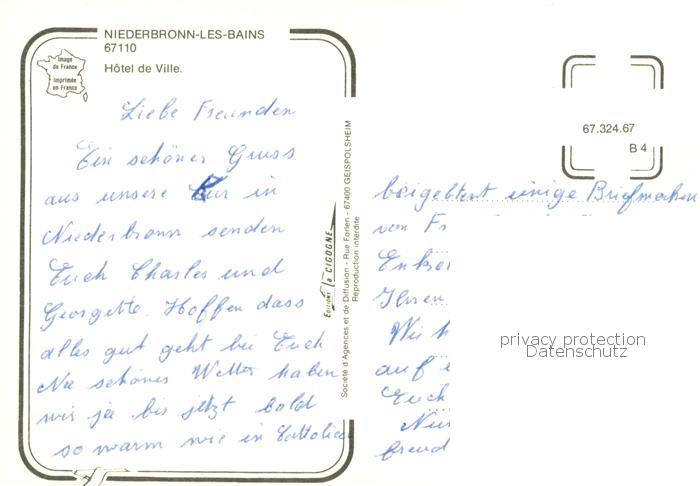 NIEDERBRONN-LES-BAINS
67110
Hôtel de Ville.
Image
de France
Imprimée
en France
Liebe Freunden
Ein schöner Gruss
aus unsere Kur in
Niederbronn senden
Euch Charles und
Georgette. Hoffen dass
alles gut geht bei Euch
Nie schönes Wetter haben
wir ja bis jetzt bald
so warm wie in Cattolica
EDITIONS la CIGOGNE
Société d'Agences et de Diffusion - Rue Forlen - 67400 GEISPOLSHEIM
Reproduction interdite
67.324.67
B 4
beigeblent einige Briefmarken
von Fr
Enke
Ihren
Wir h
auf
Euch
freud
privacy protection
Datenschutz